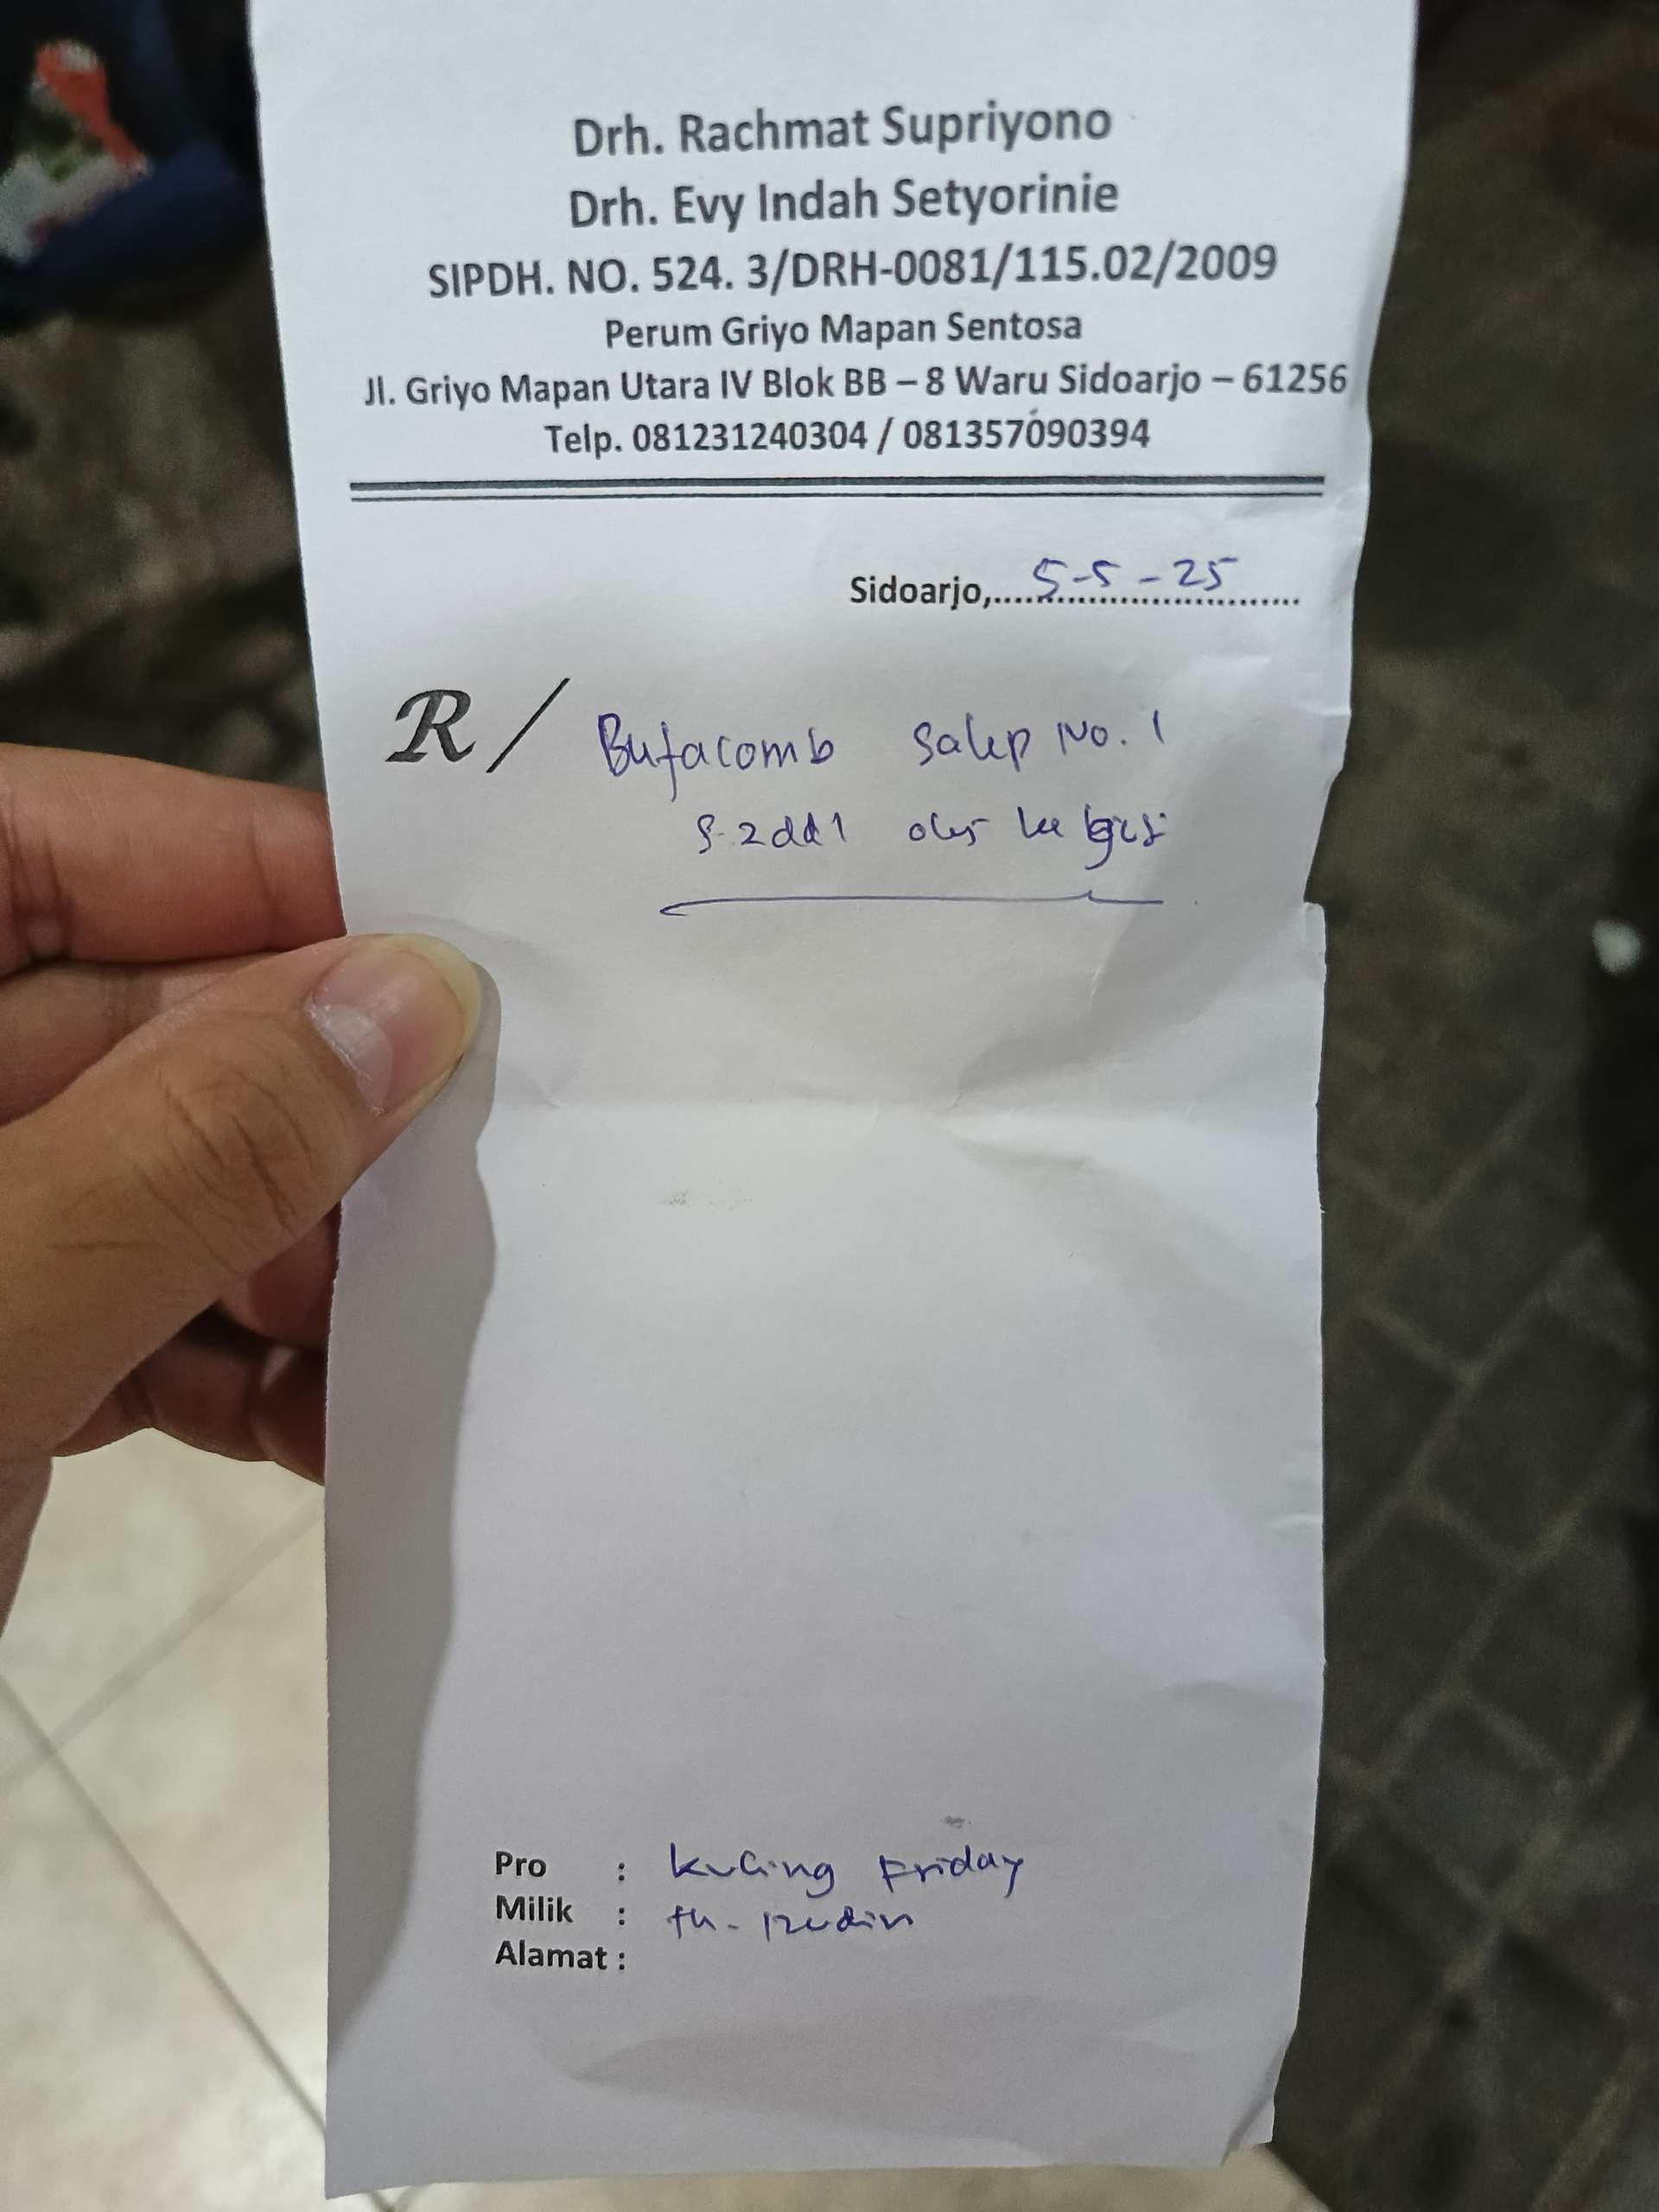 Drh. Rachmat Supriyono
Drh. Evy Indah Setyorinie
SIPDH. NO. 524. 3/DRH-0081/115.02/2009
Perum Griyo Mapan Sentosa
Jl. Griyo Mapan Utara IV Blok BB – 8 Waru Sidoarjo – 61256
Telp. 081231240304 / 081357090394
Sidoarjo, 5-5-25
R/ Bufacomb salep No. 1
S. 2dd1 oles ke
Pro : kucing Friday
Milik :
Alamat :